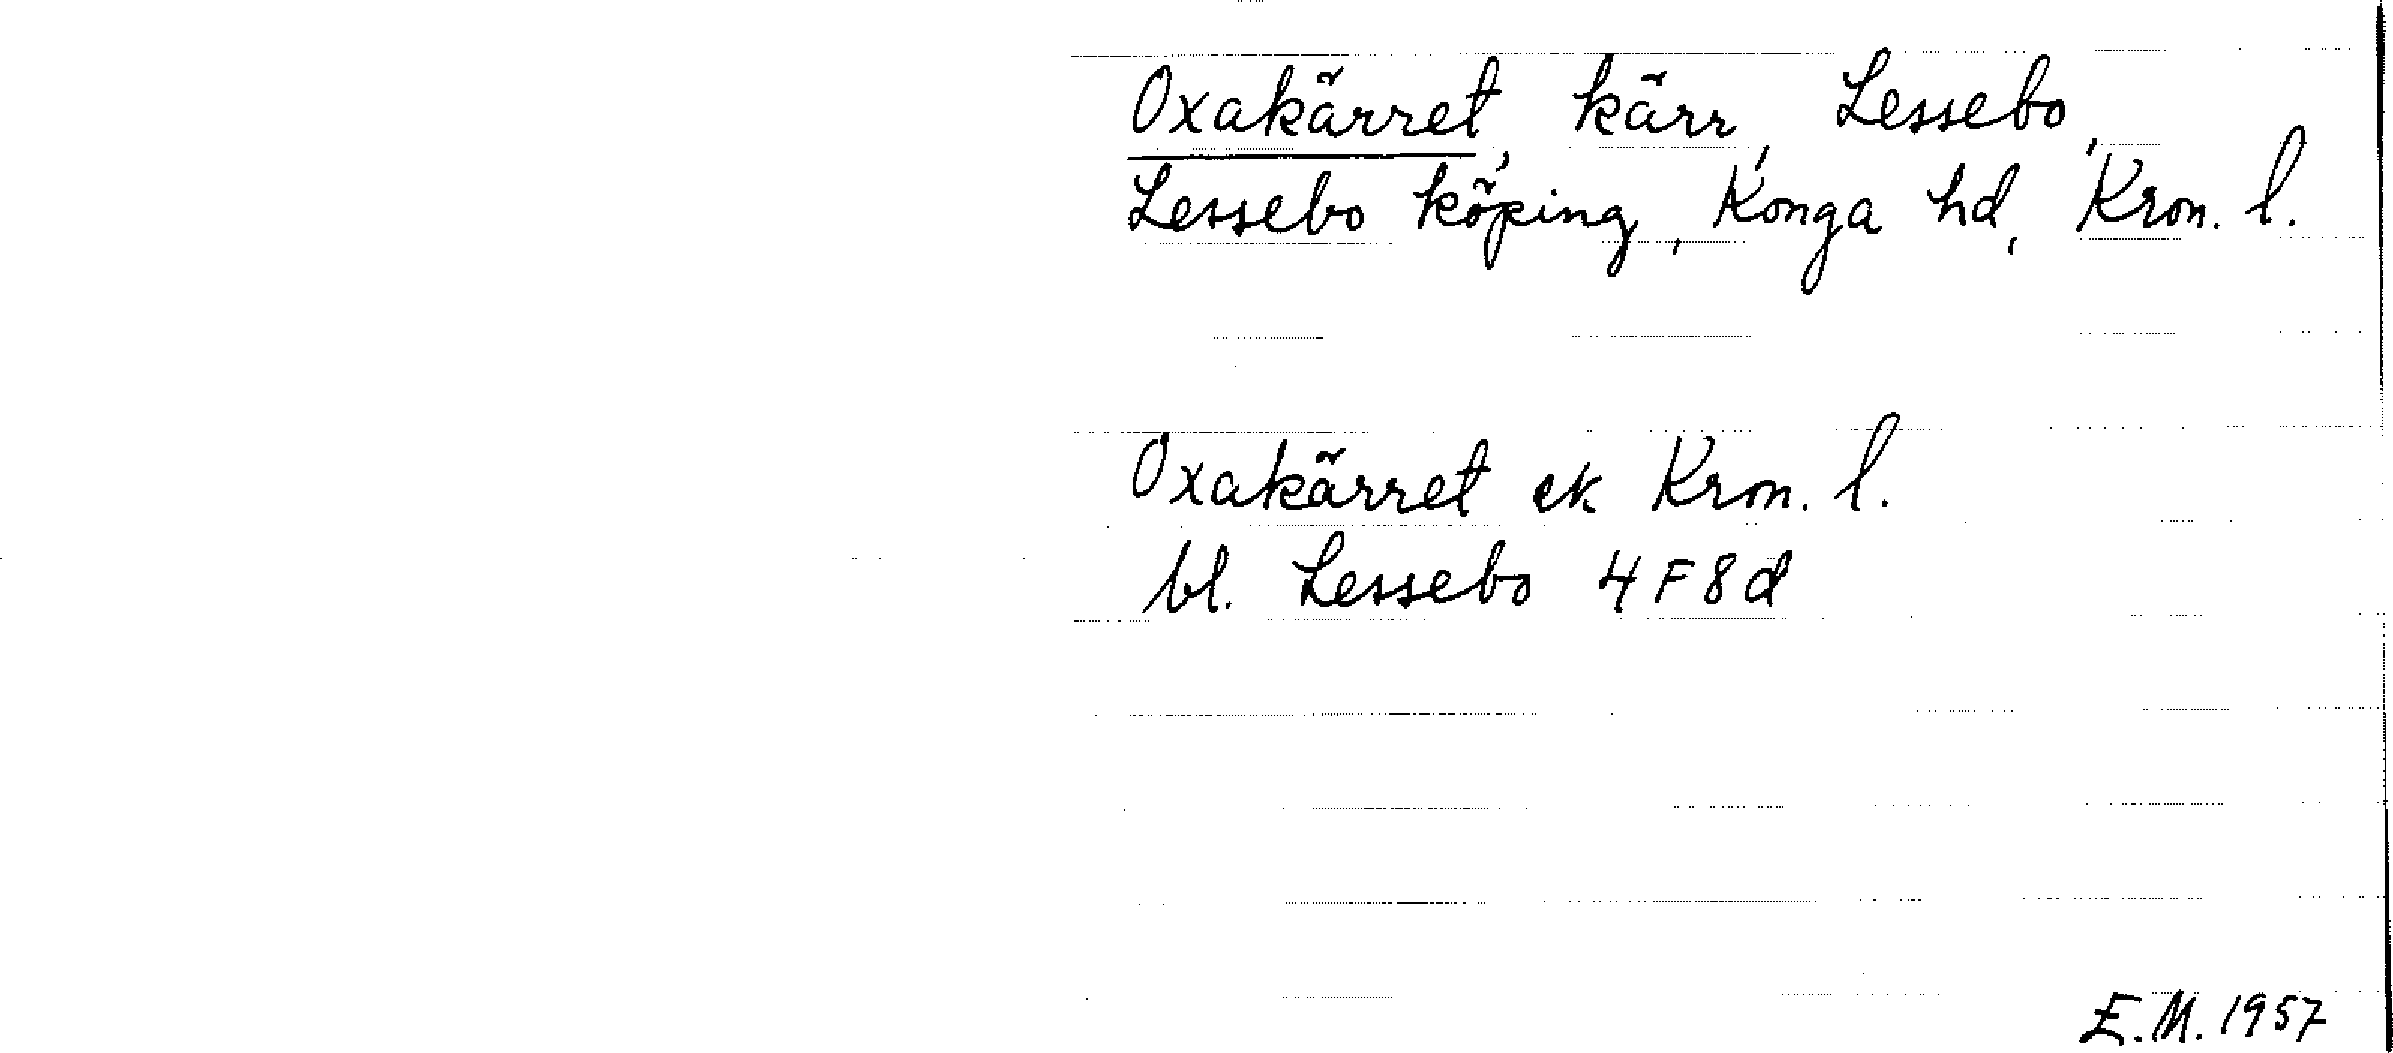 Oxakärret, kärr, Lessebo,
Lessebo köping, Konga hd, Kron. l.
Oxakärret ek Kron. l.
bl. Lessebo 4F8d
E.M. 1957